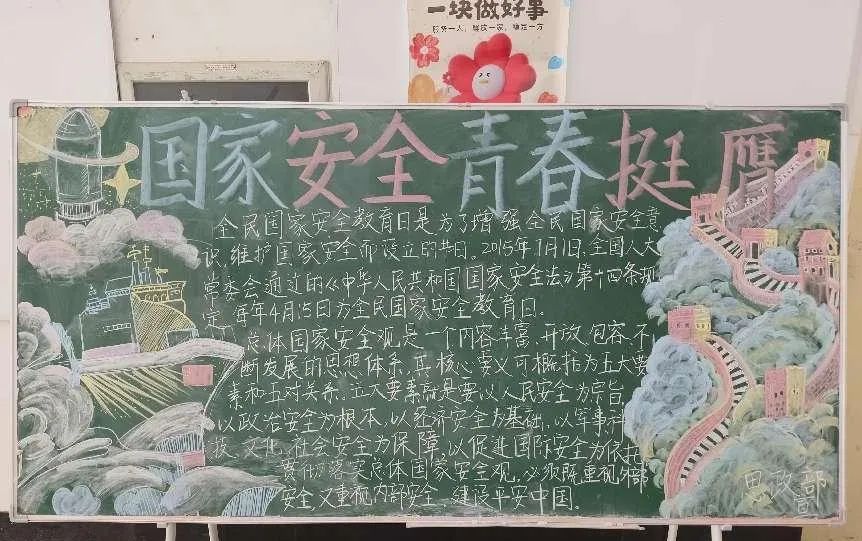 一块做好事
服务一人,一家,稳定一方
国家安全青春挺膺
全民国家安全教育日是为了增强全民国家安全意
识,维护国家安全而设立的节日。2015年7月1日,全国人大
常委会通过的《中华人民共和国国家安全法》第十四条规
定,每年4月15日为全民国家安全教育日。
总体国家安全观是一个内容丰富、开放包容、不
断发展的思想体系,其核心要义可概括为五大要
素和五对关系。五大要素就是要以人民安全为宗旨,
以政治安全为根本,以经济安全为基础,以军事科
技、文化、社会安全为保障,以促进国际安全为依托
贯彻落实总体国家安全观,必须既重视外部
安全,又重视内部安全,建设平安中国。
思政部
宣